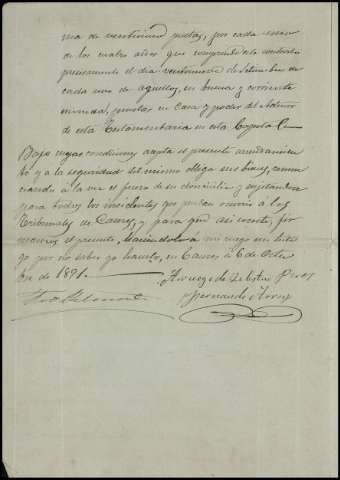 ma de veintiuna pesetas, por cada
de los cuatro años que comprende el contrato
precisamente el dia veintinueve de Setiembre de
cada uno de aquellos, en buena y corriente
moneda, puestas en Casa y poder del
de esta Testamentaria en esta Capital.
Bajo cuyas condiciones acepta el presente arrendamien
to y a la seguridad del mismo obliga sus bienes, renun
ciando á la vez el fuero de su domicilio y sujetandose
para todos los incidentes que puedan ocurrir á los
Tribunales de Caceres, y para que asi conste, fir
mamos el presente, Maria á mi ruego un testi
go por no saber yo hacerlo, en Caceres á 6 de Octu
bre de 1891.
A ruego de
Fernando